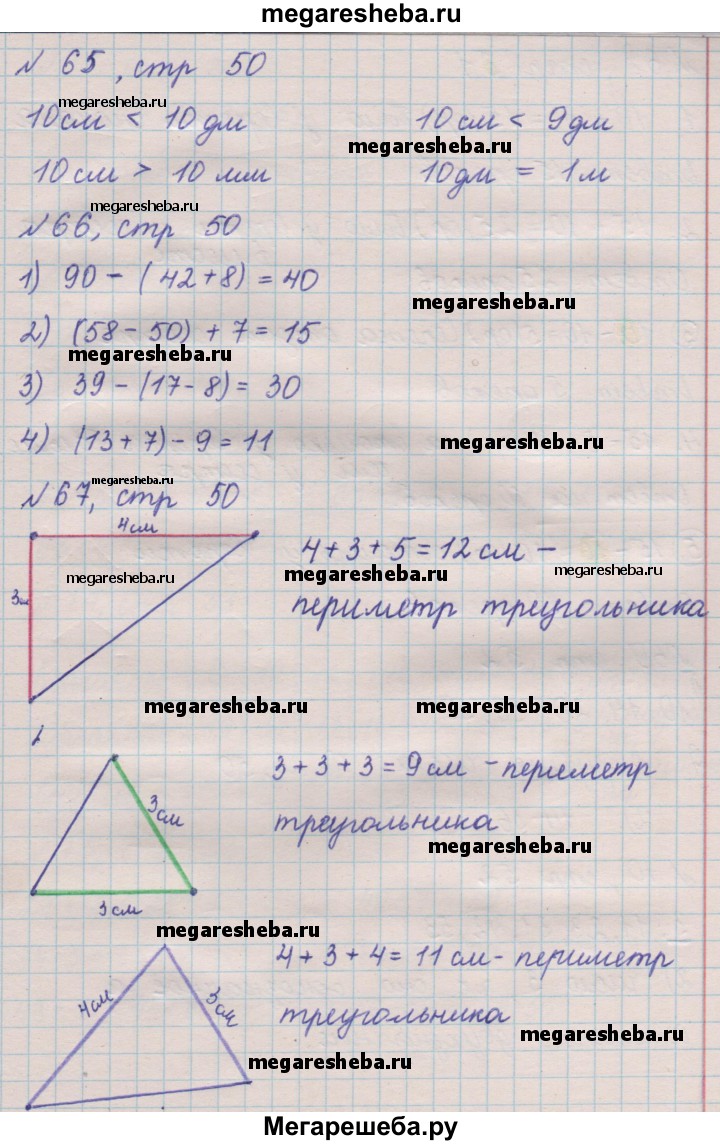 megaresheba.ru
№ 65, стр 50
megaresheba.ru
10 см < 10 дм 10 см < 9 дм
megaresheba.ru
10 см > 10 мм 10 дм = 1 м
megaresheba.ru
№ 66, стр 50
1) 90 - (42 + 8) = 40
megaresheba.ru
2) (58 - 50) + 7 = 15
megaresheba.ru
3) 39 - (17 - 8) = 30
4) (13 + 7) - 9 = 11
megaresheba.ru
megaresheba.ru
№ 67, стр 50
4 см
4 + 3 + 5 = 12 см -
megaresheba.ru megaresheba.ru megaresheba.ru
3 см
периметр треугольника
megaresheba.ru megaresheba.ru
3 + 3 + 3 = 9 см - периметр
3 см
треугольника
megaresheba.ru
3 см
megaresheba.ru
4 + 3 + 4 = 11 см - периметр
4 см 3 см
треугольника
megaresheba.ru
megaresheba.ru
Мегарешеба.ру